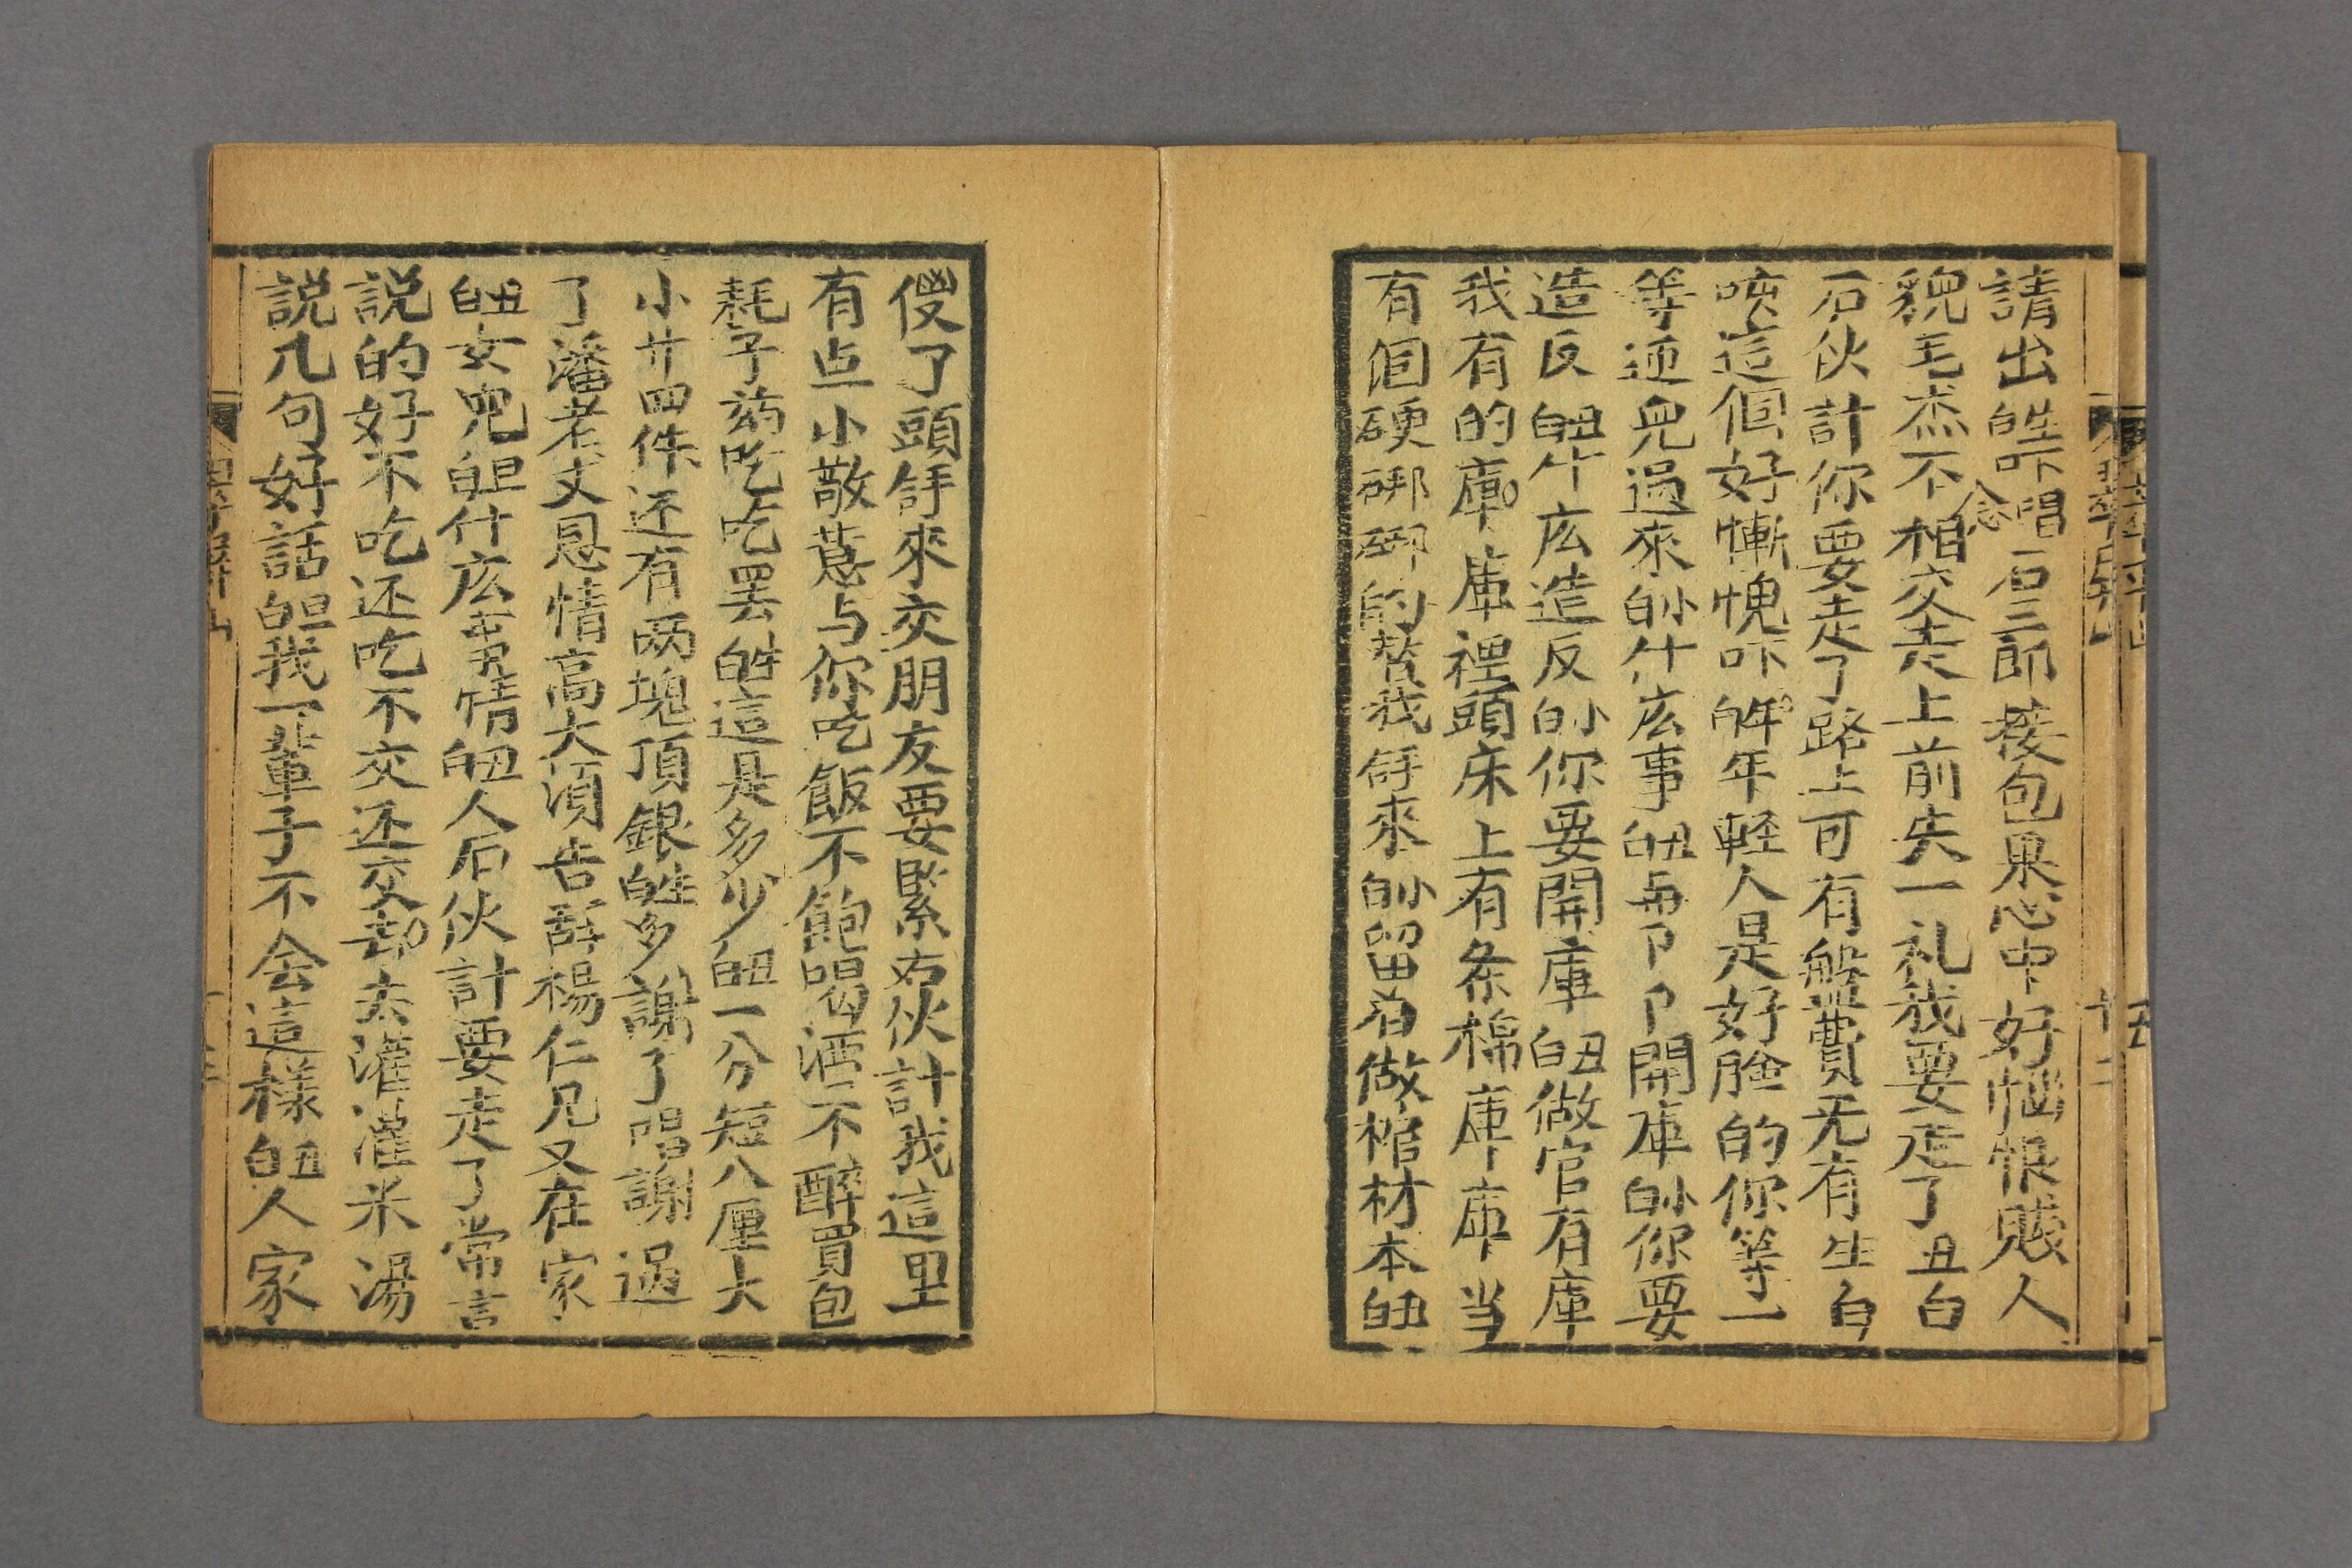 請出生白吓唱念石三郎接包果心中好惱恨賤人
貌毛杰不相交走上前失一礼我要走了丑白
石伙計你要走了路上可有盤費无有生白
咳這個好慚愧吓年白年輕人是好脸的你等一
等迊兒過來小白什庅事丑白与卩卩開庫小白你要
造反丑白什庅造反小白你要開庫丑白做官有庫
我有的庫庫裡頭床上有条棉庫庫当
有個硬硼硼的替我舒來小白留着做棺材本丑白
傻了頭舒來交朋友要緊石伙計我這里
有点小敬意与你吃飯不飽喝酒不醉買包
耗子药吃吃罢生白這是多少丑白一分短八厘大
小廿四件还有两塊頂銀生白多謝了唱謝過
了潘老丈恩情高大須告辞楊仁兄又在家
丑白女兜旦白什庅事情丑白人石伙計要走了常言
説的好不吃还吃不交还交却去灌灌米湯
説几句好話旦白我一輩子不会這樣丑白人家